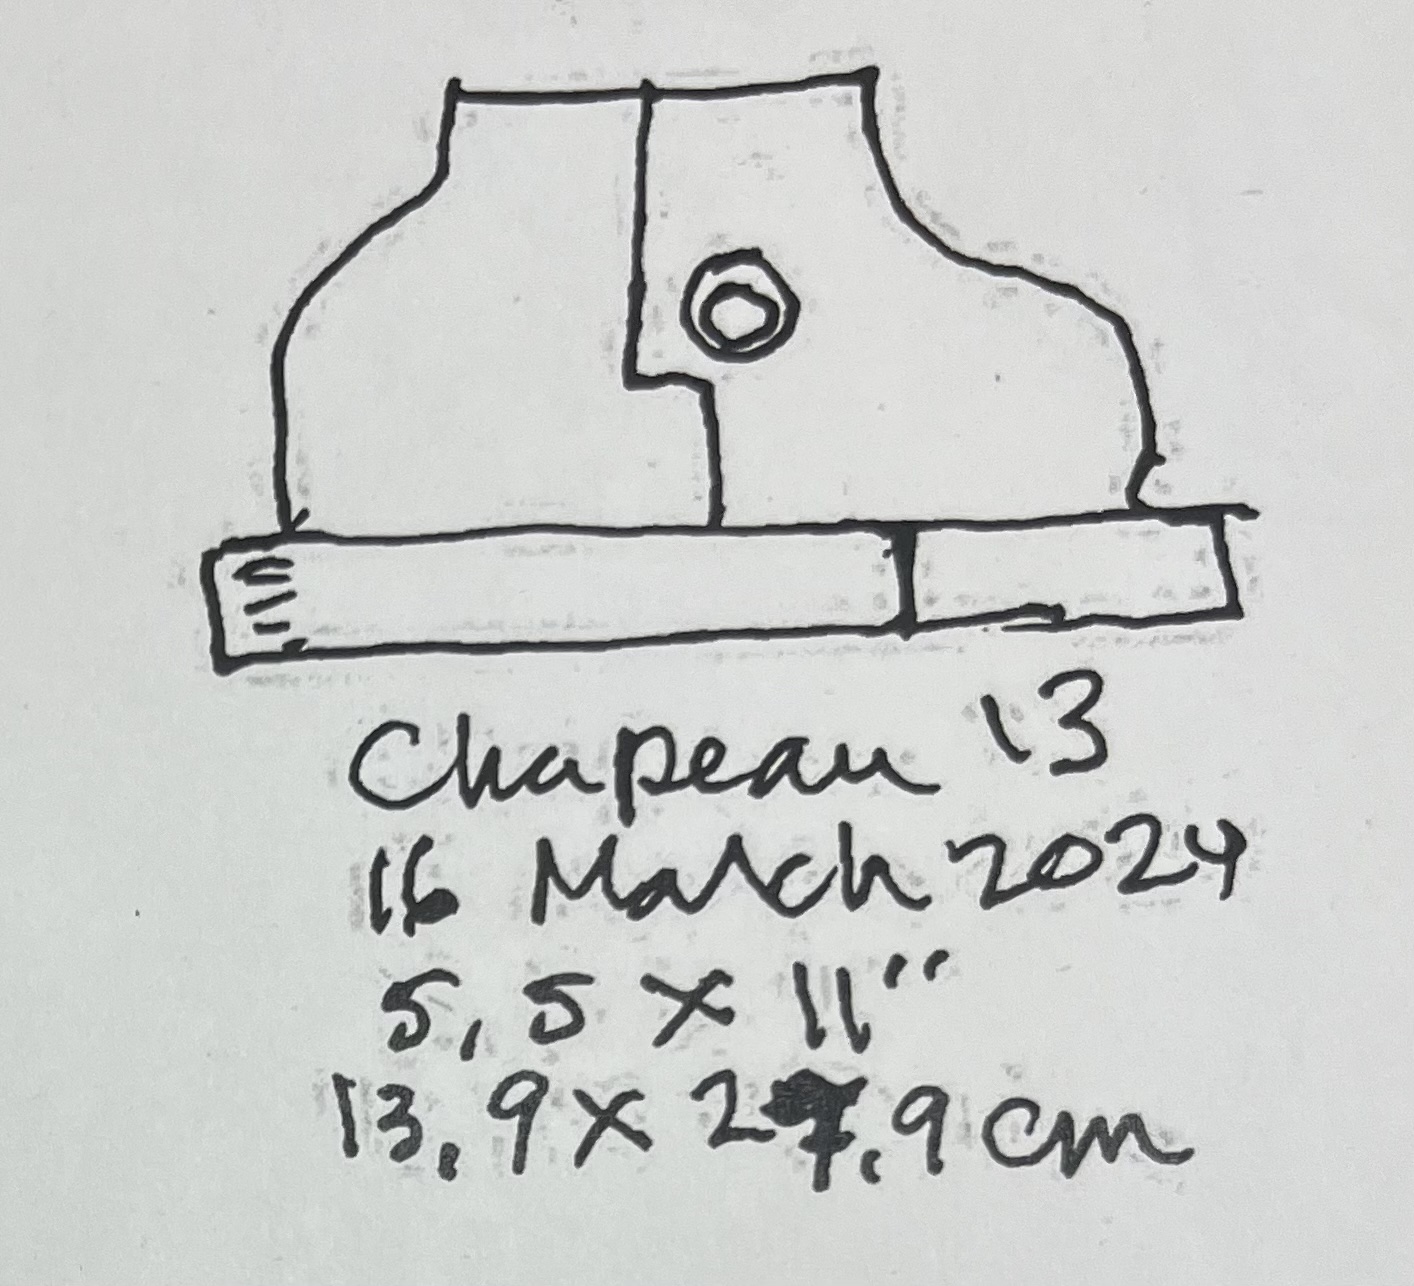 Chapeau 13
16 March 2024
5,5 x 11"
13,9 x 27,9 cm